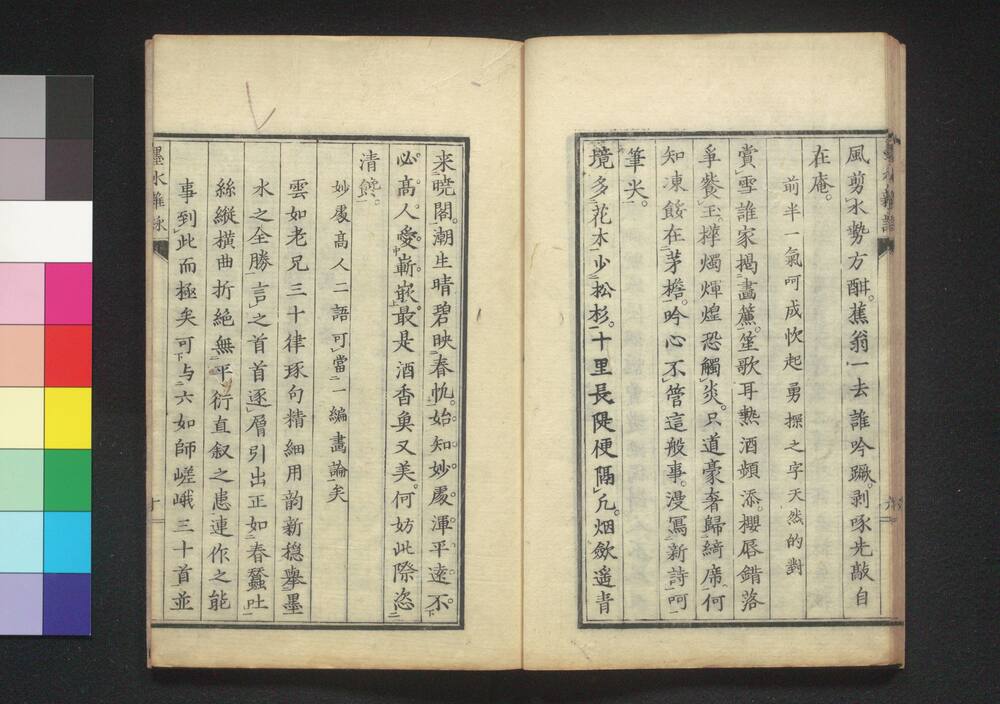 風剪水勢方酣。蕉翁一去誰吟蹶。剥啄先敲自
在庵。
前半一氣呵成忺起勇探之字天然的對
賞雪誰家揭畵簾。笙歌耳熱酒頻添。櫻唇錯落
爭餐玉。擇燭煇煌恐觸炎。只道豪奢歸綺席。何
知凍餒在茅檐。吟心不管這般事。漫寫新詩呵
筆尖。
境多花木少松杉。十里長隄便隔凡。烟斂遥青
來曉閣。潮生晴碧映春帆。始知妙處渾平遠。不
必高人愛嶄嵌。最是酒香魚又美。何妨此際恣
清饞。
妙處高人二語可當一編畵論矣
雲如老兄三十律琢句精細用韵新穏舉墨
水之全勝言之首首逐層引出正如春蠶吐
絲縱横曲折絶無平衍直叙之患連作之能
事到此而極矣可与六如師嵯峨三十首並
墨水雜詠
十